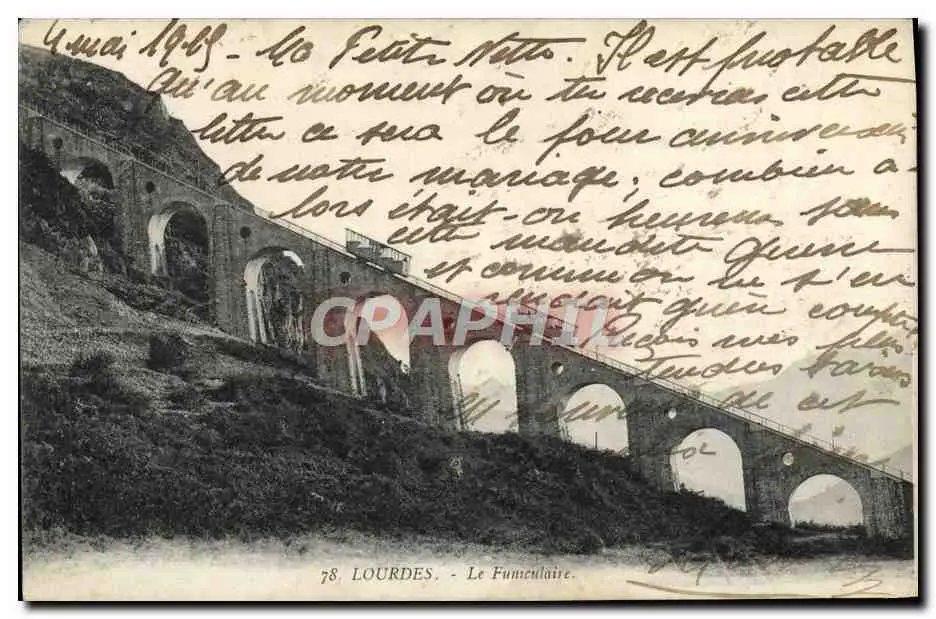 4 mai 1915 - Ma Petite Netto. Il est probable
qu'au moment où tu recevras cette
lettre ce sera le jour anniversaire
de notre mariage; combien a-
lors était-on heureux sans
cette maudite guerre
et comme on ne s'en
guère compte
Reçois mes plus
tendres baisers
de
CPAPHIL
78 LOURDES. - Le Funiculaire.